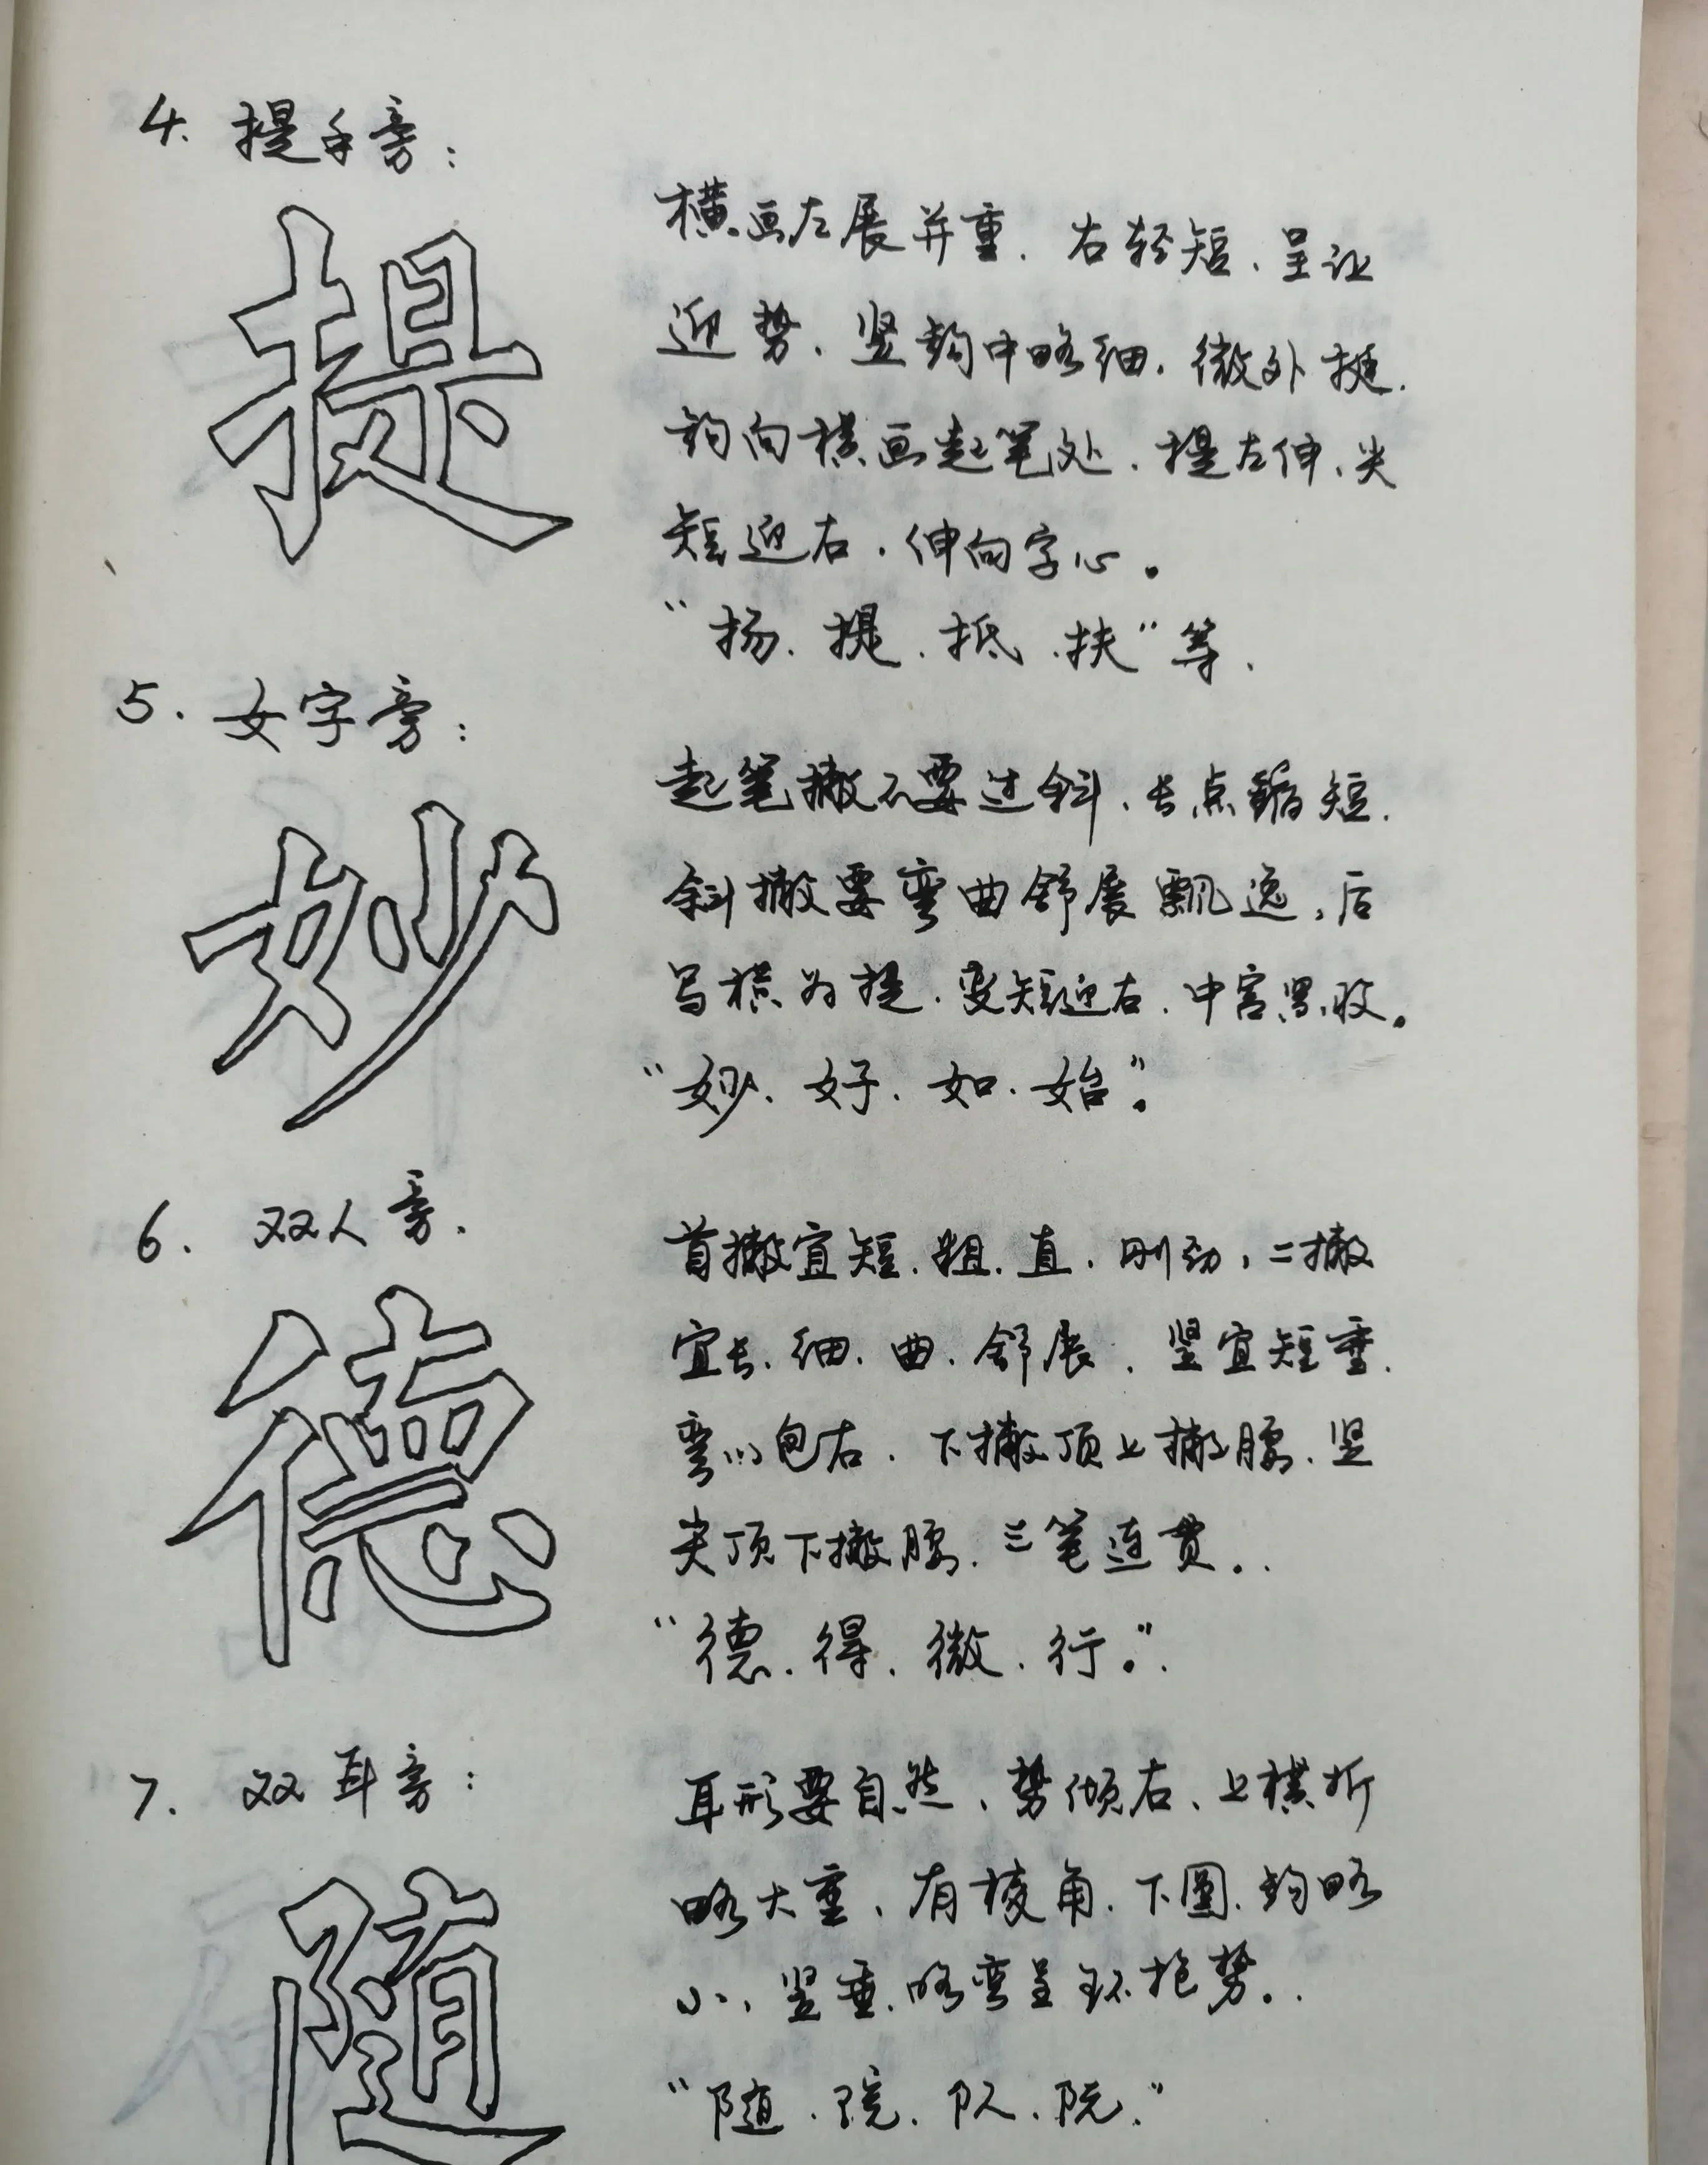 4. 提手旁:
提
横画左展并重.右轻短、呈让
迎势、竖钩中略细.微外挺.
钩向横画起笔处.提左伸、尖
短迎右.伸向字心。
“扬.提.抵.扶”等.
5. 女字旁:
妙
起笔撇不要过斜、长点缩短.
斜撇要弯曲舒展飘逸,后
写横为提.变短迎右.中宫紧收。
“妙.好.如.始”。
6. 双人旁.
德
首撇宜短.粗.直.刚劲,二撇
宜长.细.曲.舒展.竖宜短重.
弯以包右.下撇顶上撇腰.竖
尖顶下撇腰.三笔连贯..
“德.得.微.行。”.
7. 双耳旁:
随
耳形要自然、势倾右、上横折
略大重、有棱角.下圆.钩略
小、竖垂.略弯呈环抱势..
“随.院.队.阮.”